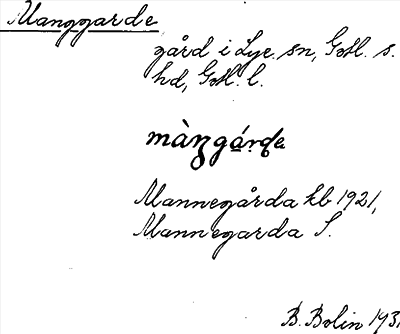 Manggarde
gård i Lye sn, Gotl. s.
hd, Gotl. l.
màŋgá̱rde
Mannegårda kb 1921,
Mannegarda S.
B. Bolin 193